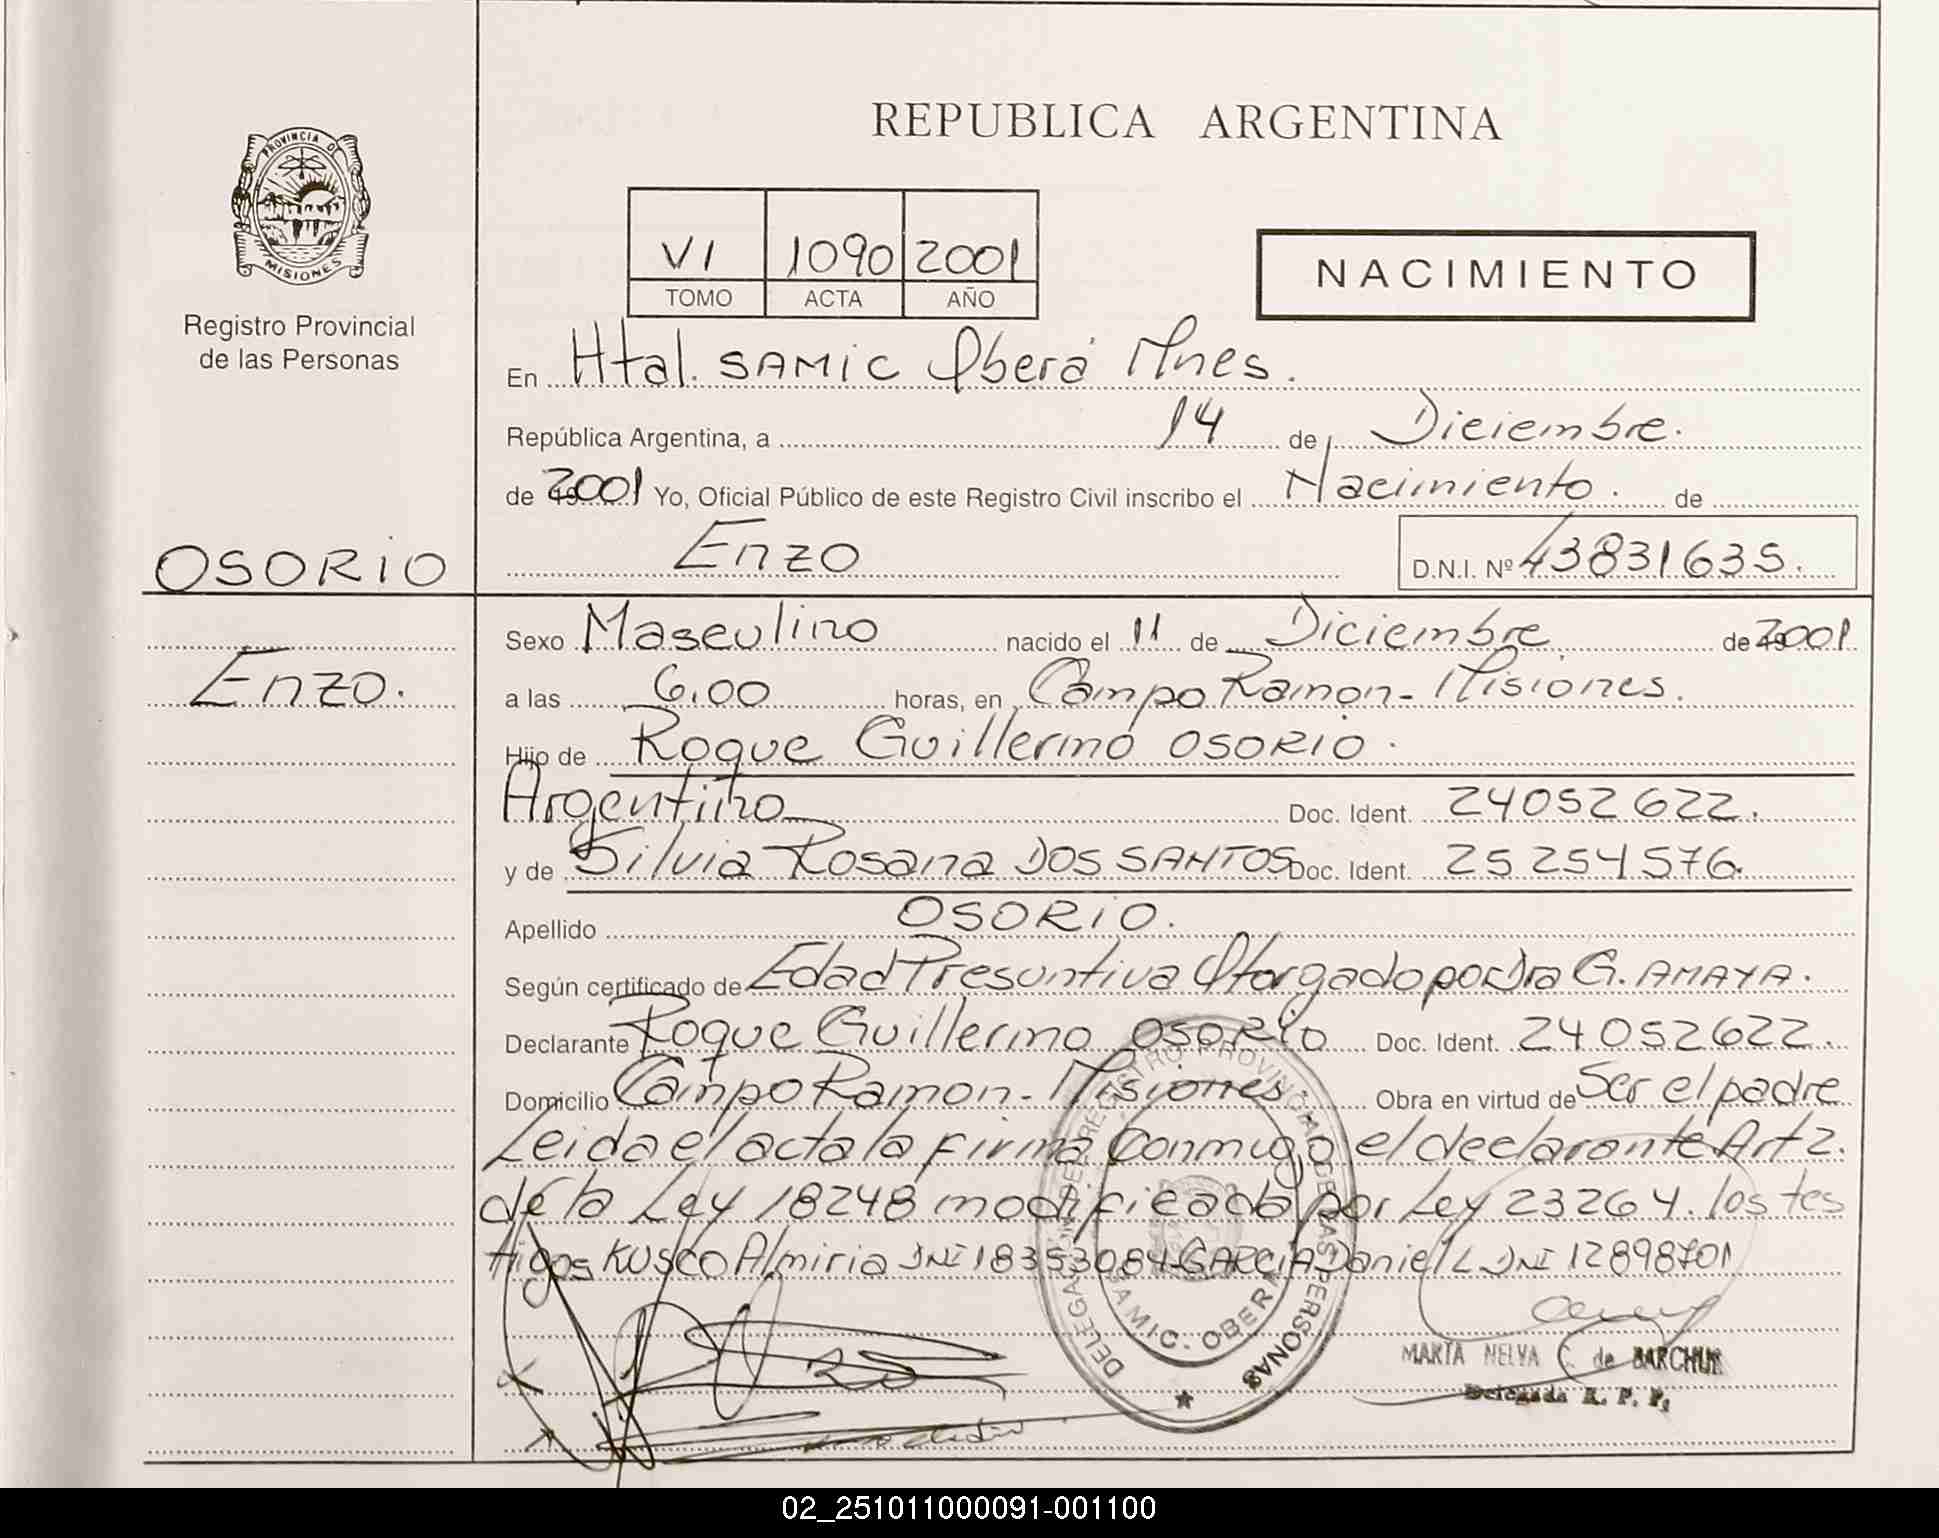 REPUBLICA ARGENTINA
PROVINCIA DE
MISIONES
Registro Provincial
de las Personas
VI 1090 2001
TOMO ACTA AÑO
NACIMIENTO
En Htal. SAMIC Oberá Mnes.
República Argentina, a 14 de Diciembre.
de 2001 Yo, Oficial Público de este Registro Civil inscribo el Nacimiento. de
OSORIO
Enzo D.N.I. Nº 43831635.
Sexo Masculino nacido el 11 de Diciembre de 2001
Enzo.
a las 6.00 horas, en Campo Ramon - Misiones.
Hijo de Roque Guillermo OSORIO.
Argentino Doc. Ident. 24052622.
y de Silvia Rosana DOS SANTOS Doc. Ident. 25254576.
Apellido OSORIO.
Según certificado de Edad Presuntiva Otorgado por Dra G. AMAYA.
Declarante Roque Guillermo OSORIO Doc. Ident. 24052622.
Domicilio Campo Ramon - Misiones. Obra en virtud de Ser el padre
Leida el acta la firma conmigo el declarante Art 2.
de la Ley 18248 modificada por Ley 23264. los tes
tigos KUSCO Almiria DNI 18353084 - GARCIA Daniel L DNI 12898701
DELEGACION DEL REGISTRO PROVINCIAL DE LAS PERSONAS
SAMIC. OBERA
MARTA NELVA C. de BARCHUK
Delegada R. P. P.
02_251011000091-001100